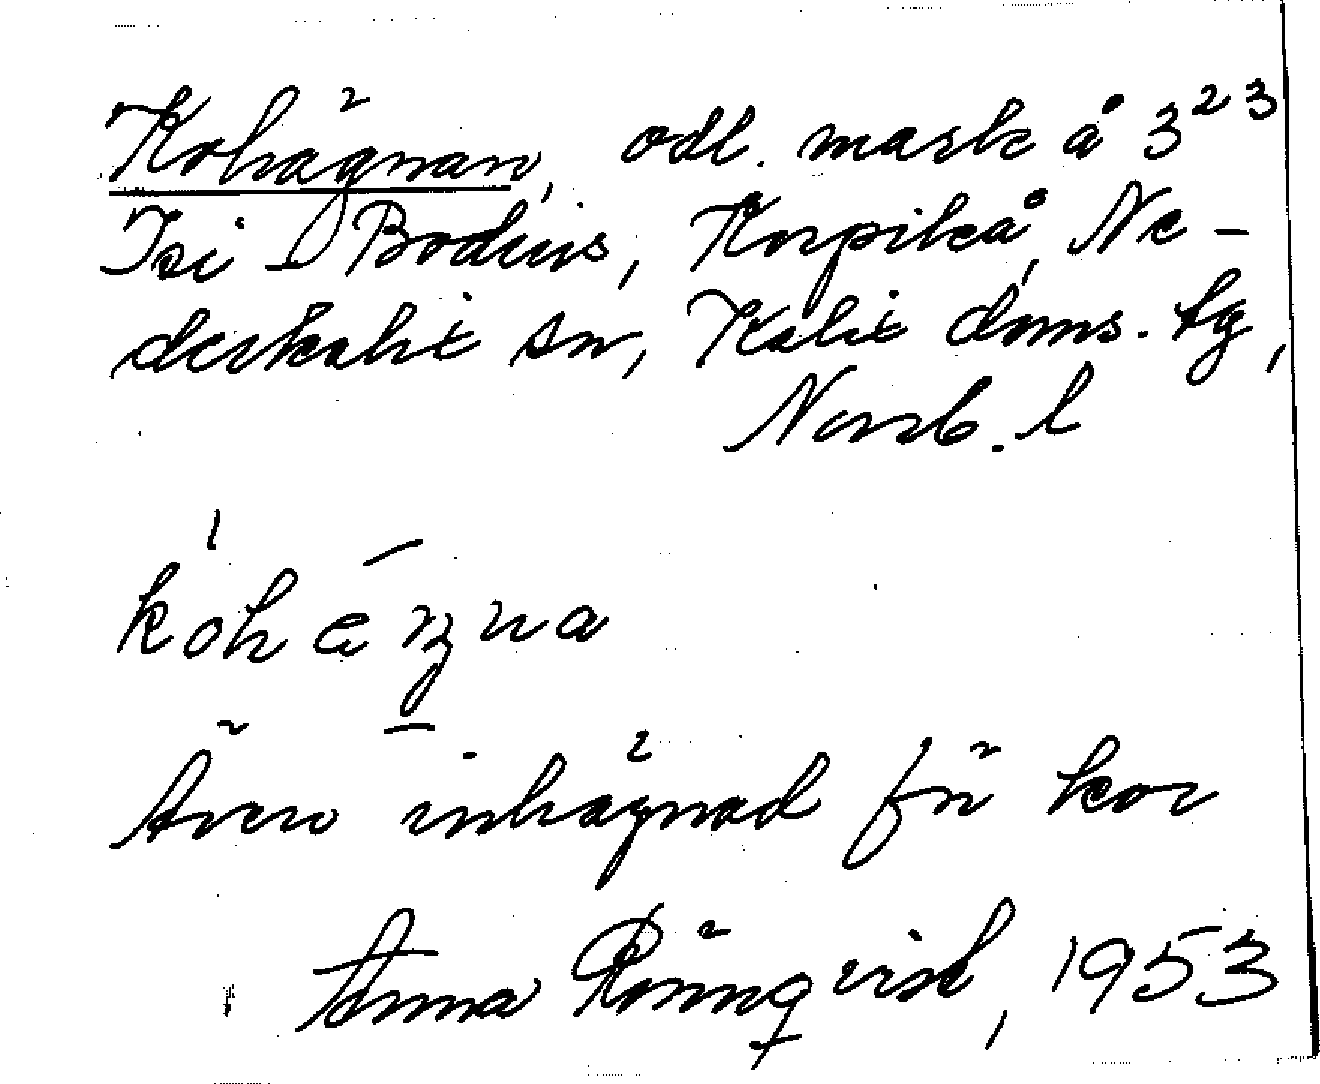 Kohägnan, odl. mark å 3²³
Isi I Bodius, Korpikå, Ne-
derkalix sn, Kalix doms. tg,
Norrb. l
kohäŋna
Även inhägnad för kor
Anna Rönnqvist, 1953